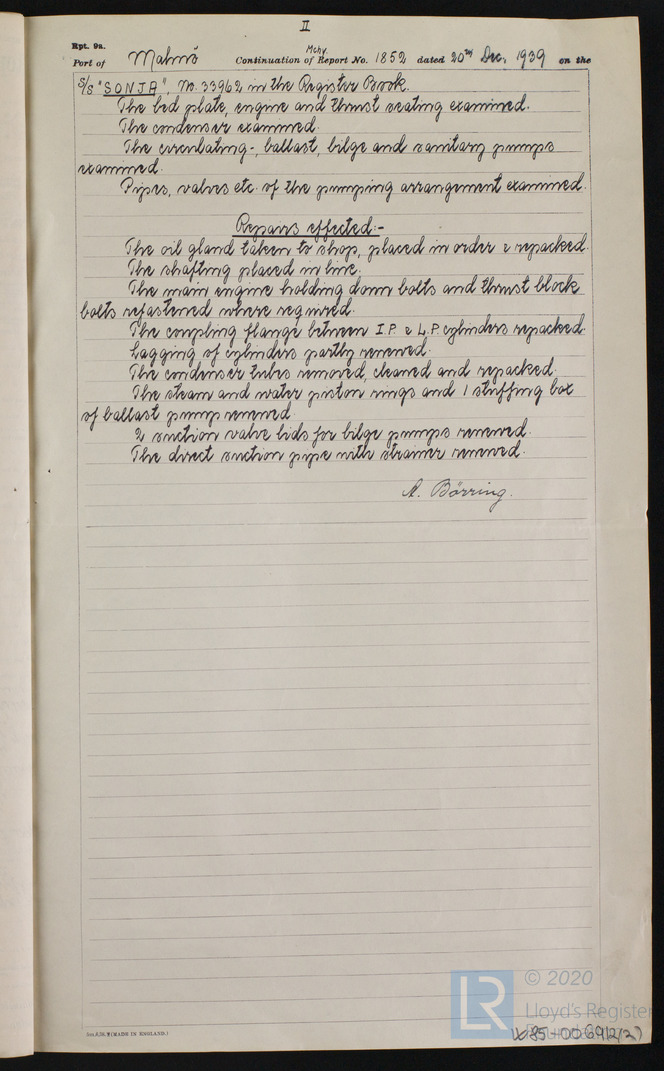 II
Rpt. 9a.
Port of Malmö Continuation of Mchy. Report No. 1852 dated 20th Dec. 1939 on the
S/S "SONJA", No. 33962 in the Register Book.
The bed plate, engine and thrust seating examined.
The condenser examined.
The circulating-, ballast, bilge and sanitary pumps
examined.
Pipes, valves etc. of the pumping arrangement examined.
Repairs effected:-
The oil gland taken to shop, placed in order & repacked.
The shafting placed in line.
The main engine holding down bolts and thrust block
bolts refastened where required.
The coupling flange between I.P. & L.P. cylinders repacked.
Lagging of cylinders partly renewed.
The condenser tubes removed, cleaned and repacked.
The steam and water piston rings and 1 stuffing box
of ballast pump renewed.
2 suction valve lids for bilge pumps renewed.
The direct suction pipe with strainer renewed.
A. Börring.
(MADE IN ENGLAND.)
LR
© 2020
Lloyd's Register